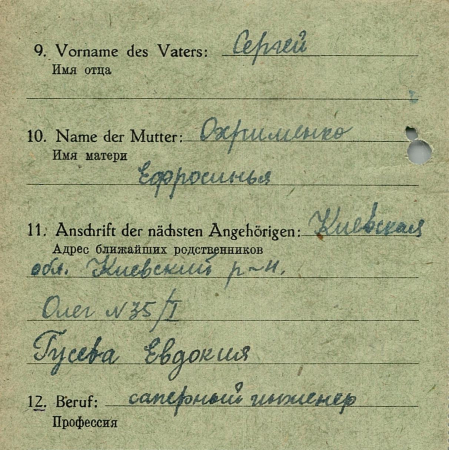 9. Vorname des Vaters: Сергей
Имя отца
10. Name der Mutter: Охрименко
Имя матери
Ефросинья
11. Anschrift der nächsten Angehörigen: Киевская
Адрес ближайших родственников
обл. Киевский р-н.
Олег N 35/I
Гусева Евдокия
12. Beruf: саперный инженер
Профессия